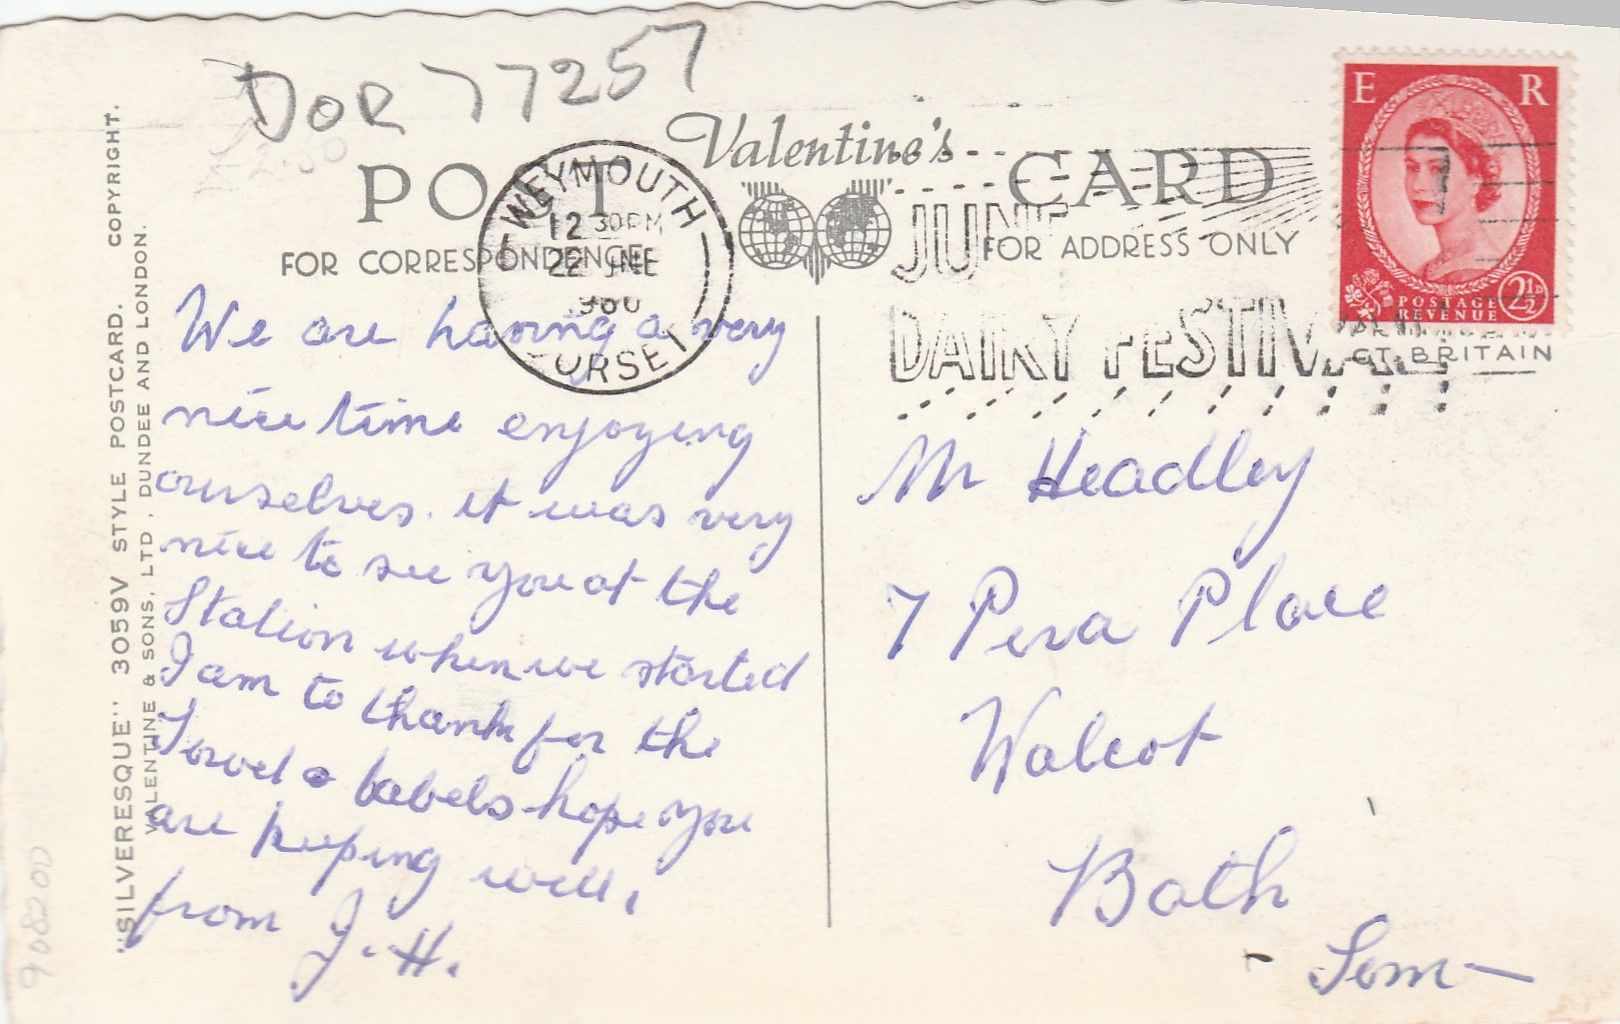 DOR 77257
Valentine's
POST CARD
FOR CORRESPONDENCE
FOR ADDRESS ONLY
WEYMOUTH
12 30PM
22 JNE
1960
DORSET
JUNE
DAIRY FESTIVAL
E R
POSTAGE
REVENUE
2½D
GT. BRITAIN
We are having a very
nice time enjoying
ourselves. it was very
nice to see you at the
Station when we started
I am to thank for the
Towel & labels hope you
are keeping well,
from J. H.
Mr Headley
7 Pera Place
Walcot
Bath
- Som -
"SILVERESQUE" 3059V STYLE POSTCARD. COPYRIGHT.
VALENTINE & SONS, LTD., DUNDEE AND LONDON.
908200